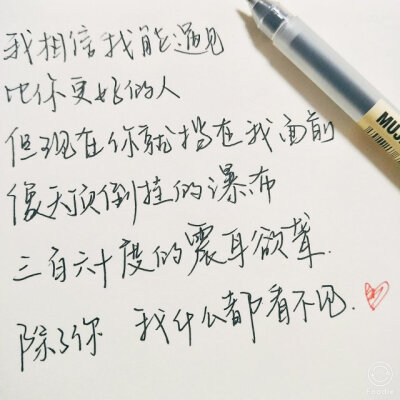 我相信我能遇见
比你更好的人
但现在你就挡在我面前
像天顶倒挂的瀑布
三百六十度的震耳欲聋.
除了你 我什么都看不见.
MUJI
Foodie